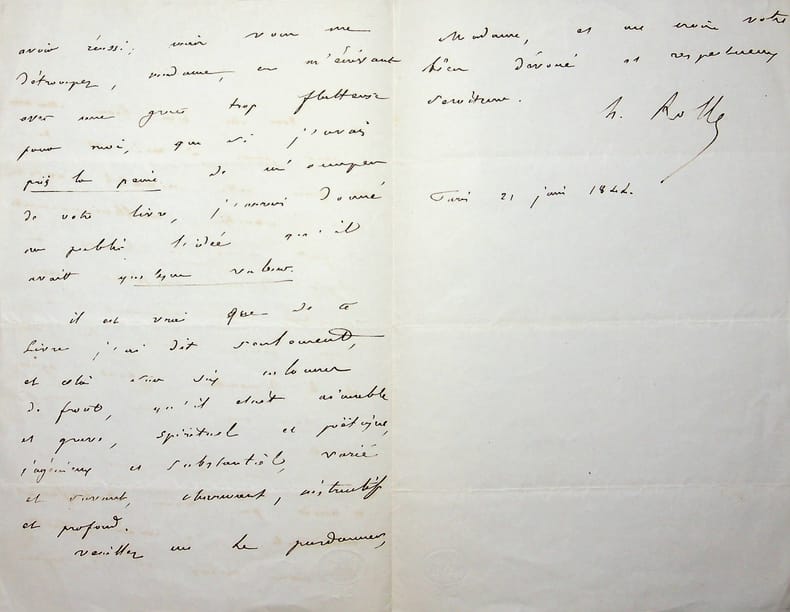 avoir réussi; mais vous me
détrompez, madame, en m'écrivant
avec une grace trop flatteuse
pour moi, que si j'avais
pris la peine de m'occuper
de votre livre, j'aurais donné
au public l'idée qu'il
avait quelque valeur.
il est vrai que de ce
livre j'ai dit seulement,
et cela dans six colonnes
de front, qu'il était aimable
et grave, spirituel et poëtique,
ingénieux et substantiel, varié
et savant, charmant, instructif
et profond.
veuillez me le pardonner,
Madame, et me croire votre
bien dévoué et respectueux
serviteur.
h. Rolle
Paris 21 juin 1844.